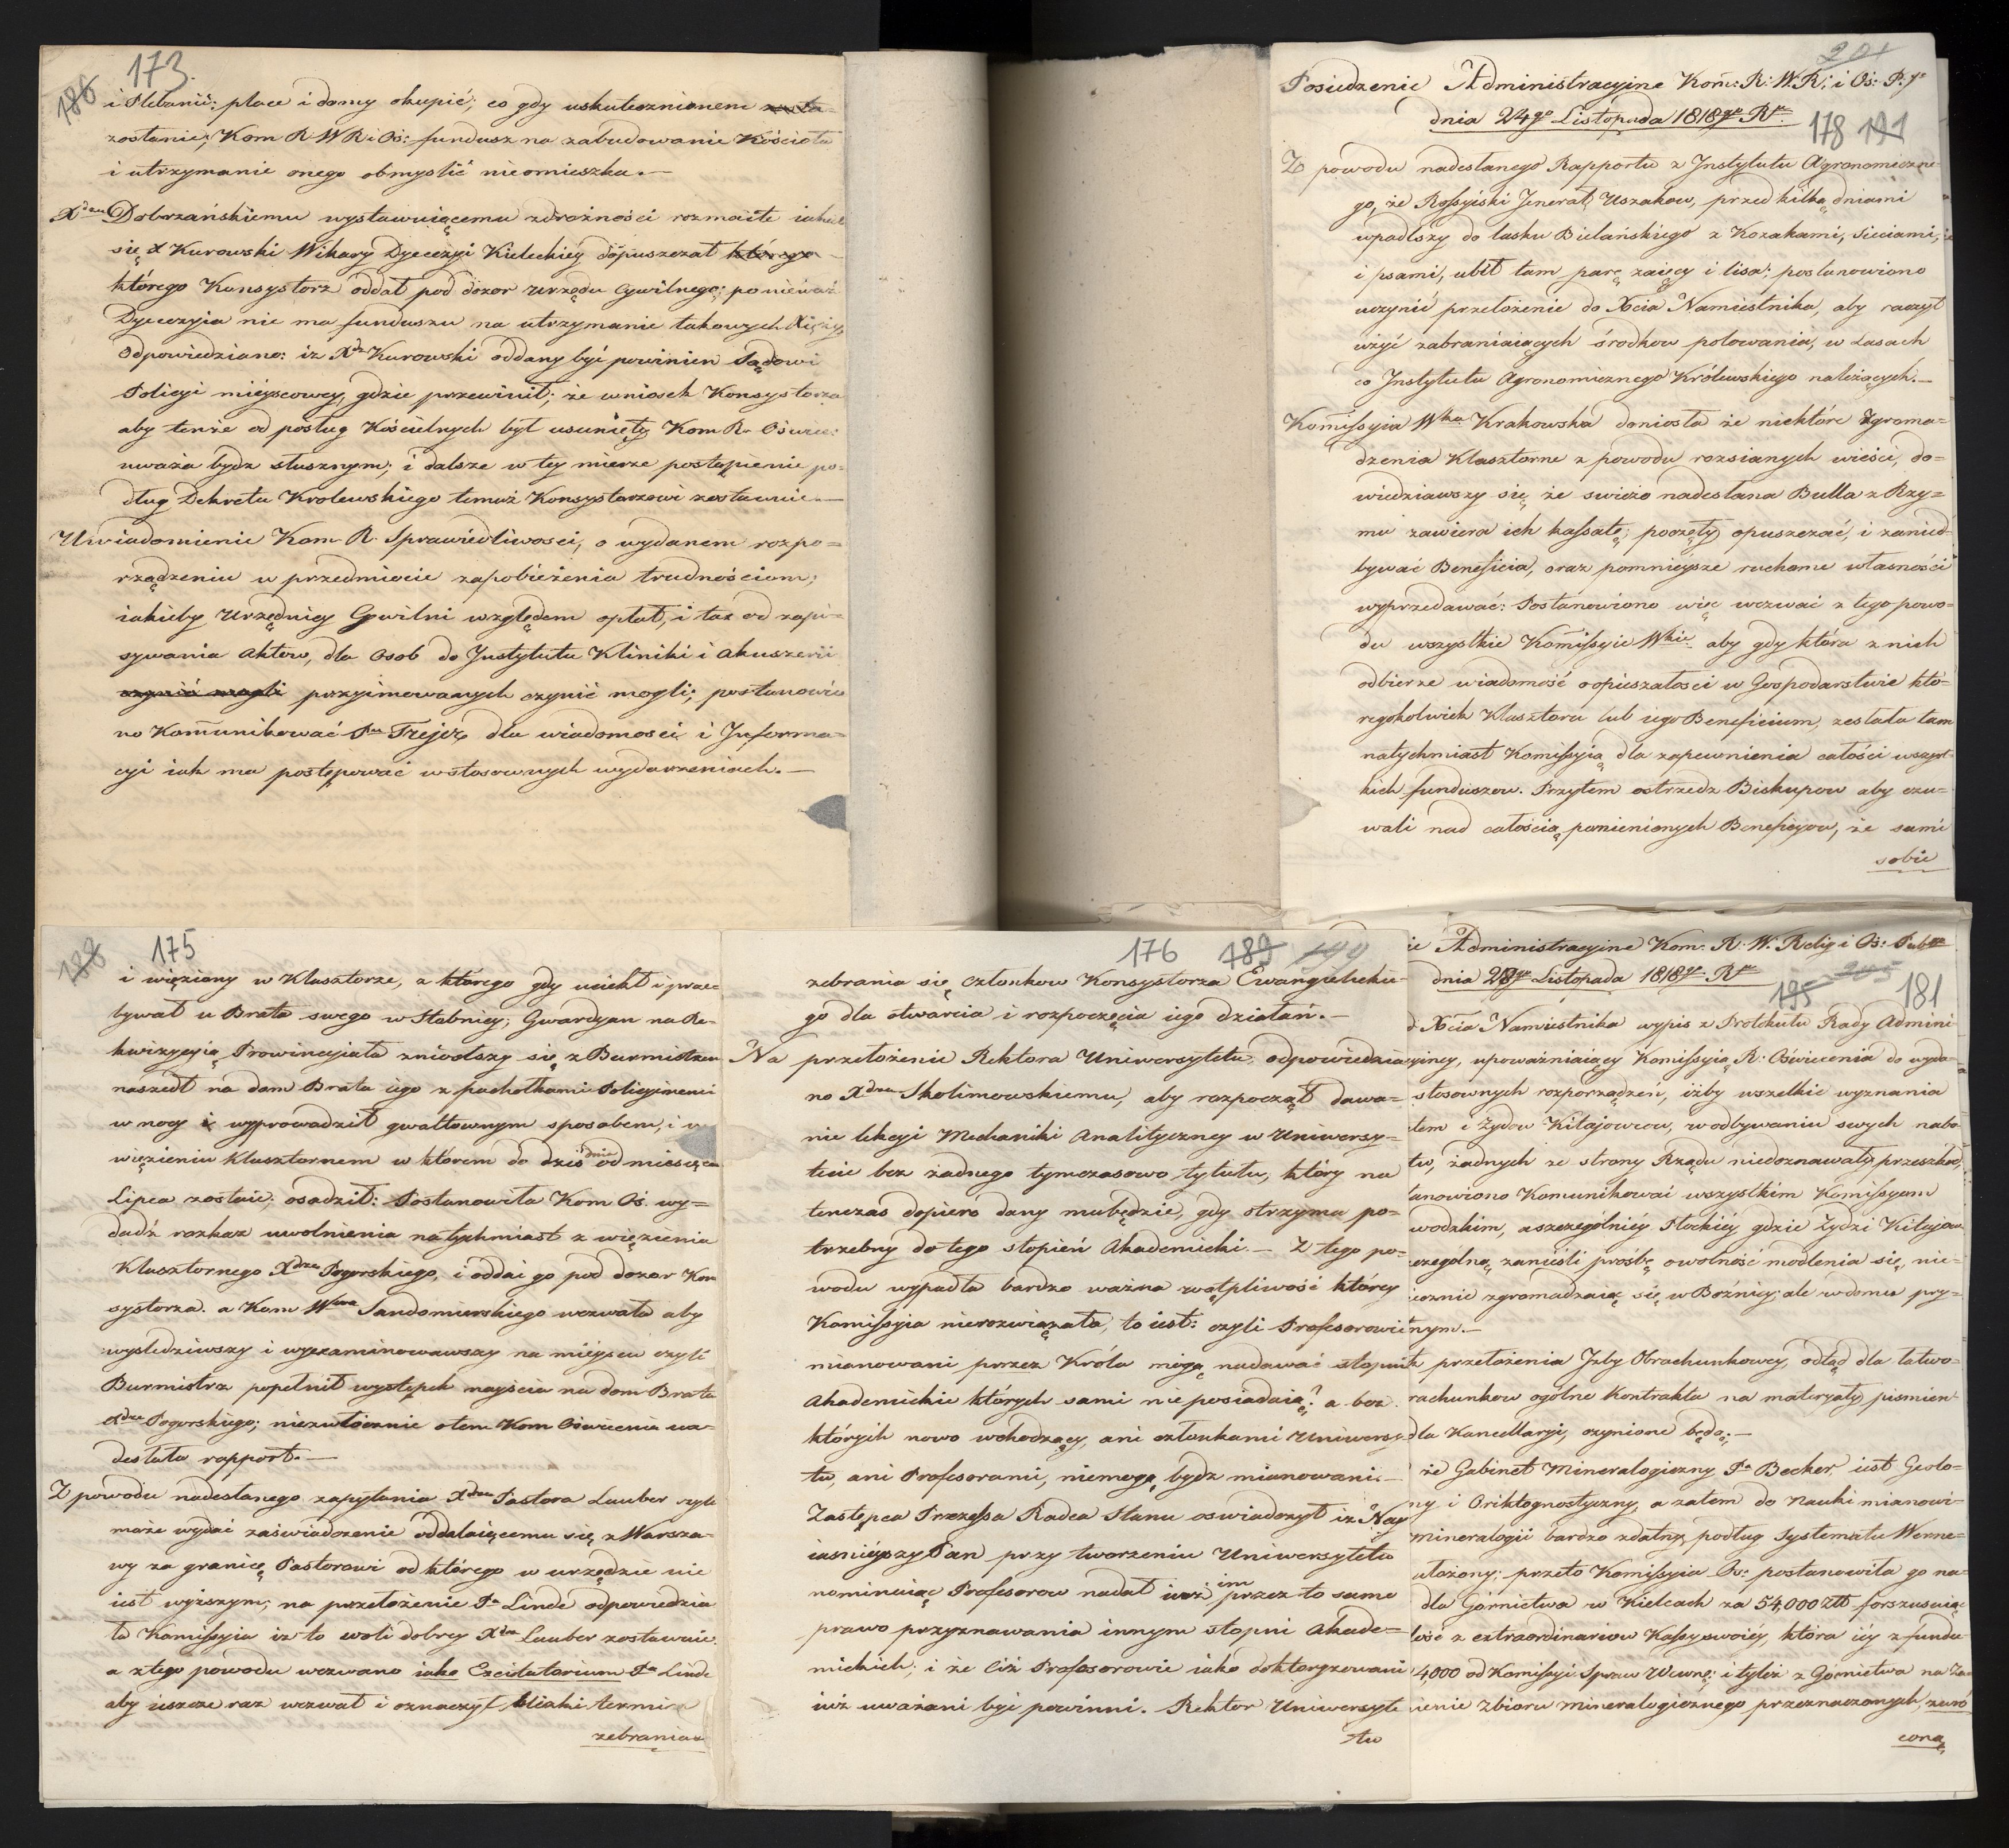 173.
186
i Plebanii; place i domy okupić; co gdy uskutecznionem
zostanie; Kom R W R i Oś: fundusz na zabudowanie Kościoła
i utrzymanie onego obmyslić nieomieszka.—
Xdzu Dobrzańskiemu wystawuiącemu zdrożności rozmaite iakich
się X Kurowski Wikary Dyecezyi Kieleckiey dopuszczał którego
którego Konsystorz oddał pod dozor urzędu Cywilnego; ponieważ
Dyecezyia nie ma funduszu na utrzymanie takowych Xięży,
Odpowiedziano: iż Xdz Kurowski oddany być powinien Sądowi
Policyi mieyscowey, gdzie przewinił; że wniosek Konsystorza
aby tenże od posług Kościelnych był usunięty Kom R. Oświe:
uważa bydz słusznym; i dalsze w tey mierze postąpienie po=
dług Dekretu Krolewskiego temuż Konsystorzowi zostawuie.—
Uwiadomienie Kom. R. Sprawiedliwosci, o wydanem rozpo=
rządzeniu w przedmiocie zapobieżenia trudnościom,
iakieby Urzędnicy Cywilni względem opłat, i tax od zapi=
sywania Aktow, dla Osob do Instytutu Kliniki i Akuszerii
czynić mogli przyimowanych czynić mogli; postanowio
no Kom̄unikować Pu Frejer dla wiadomosci i Informa=
cyi iak ma postępować w stosownych wydarzeniach.—
201
Posiedzenie Administracyine Kom̄: R: W. R: i Oś: P:
dnia 24go Listopada 1818go Rku.
178 191
Z powodu nadesłanego Rapportu z Instytutu Agronomiczne=
go, że Rossyiski Jenerał Uszakow, przed kilką dniami
wpadłszy do lasku Bielańskiego z Kozakami, sieciami,
i psami, ubił tam parę zaięcy i lisa; postanowiono
uczynić przełożenie do Xcia Namiestnika, aby raczył
użyć zabraniaiących środkow polowania, w Lasach
do Instytutu Agronomicznego Królewskiego należących.—
Kom̄issyia Wka Krakowska doniosła że niektóre Zgroma=
dzenia Klasztorne z powodu rozsianych wieści, do=
wiedziawszy się że swieżo nadesłana Bulla z Rzy=
mu zawiera ich kassatę; poczęły opuszczać, i zanied=
bywać Beneficia, oraz pomnieysze ruchome własności
wyprzedawać: Postanowiono więc wezwać z tego powo=
du wszystkie Kom̄issyie Wkie aby gdy która z nich
odbierze wiadomość o opieszałosci w Gospodarstwie któ=
regokolwiek Klasztoru lub iego Beneficium, zesłała tam
natychmiast Kom̄issyią dla zapewnienia całości wszyst=
kich funduszow. Przytem ostrzedz Biskupow aby czu=
wali nad całością pomienionych Beneficyow, że sami
sobie
188
175
i więziony w Klasztorze, z którego gdy uciekł i prze=
bywał u Brata swego w Stobnicy; Gwardyan na Re=
kwizycyią Prowincyiała zniosłszy się z Burmistrzem
naszedł na dom Brata iego z pachołkami Policyinemi
w nocy i wyprowadził gwałtownym sposobem, i w
więzieniu Klasztornem w którem do dziś dnia od miesiąca
Lipca zostaie; osadził: Postanowiła Kom Oś. wy=
dadź rozkaz uwolnienia natychmiast z więzienia
Klasztornego Xdza Pogorskiego, i oddać go pod dozor Kon
systorza. a Kom Wwa Sandomierskiego wezwała aby
wysledziwszy i wyexaminowawszy na mieyscu czyli
Burmistrz popełnił występek nayścia na dom Brata
Xdza Pogorskiego; niezwłocznie o tem Kom Oświecenia na=
desłała rapport.—
Z powodu nadesłanego zapytania Xdza Pastora Lauber czyli
może wydać zaświadczenie oddalaiącemu się z Warsza=
wy za granicę Pastorowi od którego w urzędzie nie
iest wyższym; na przełożenie Pa Linde odpowiedzia
ła Kom̄issyia iż to woli dobrey Xdza Lauber zostawuie.
a z tego powodu wezwano iako Excitatorium Pa Linde
aby ieszcze raz wezwał i oznaczył bliski termin
zebrania
176 189 190
zebrania się członkow Konsystorza Ewangielickie=
go dla otwarcia i rozpoczęcia iego działań.—
Na przełożenie Rektora Uniwersytetu odpowiedzia
no Xdzu Skolimowskiemu, aby rozpoczął dawa=
nie lekcyi Mechaniki Analityczney w Uniwersy=
tecie bez żadnego tymczasowo tytułu, który na
tenczas dopiero dany mu będzie, gdy otrzyma po=
trzebny do tego stopień Akademicki.— Z tego po=
wodu wypadła bardzo ważna wątpliwość którey
Kom̄issyia nierozwiązała, to iest: czyli Profesorowie
mianowani przez Króla mogą nadawać stopnie
Akademickie których sami nie posiadaią? a bez
których nowo wchodzący, ani członkami Uniwersy
tu, ani Profesorami, niemogą bydz mianowani.—
Zastępca Prezessa Radca Stanu oswiadczył iż Nay
iasnieyszy Pan przy tworzeniu Uniwersytetu
nominuiąc Profesorow nadał iuż im przez to samo
prawo przyznawania innym stopni Akade=
mickich; i że Ciż Profesorowie iako doktoryzowani
iuż uważani być powinni. Rektor Uniwersyte
tu
ie Administracyine Kom: R. W. Relig i Oś: Publ
dnia 28go Listopada 1818go Rku
195 205 181
d Xcia Namiestnika wypis z Protokułu Rady Admini
cyiney, upoważniaiący Komissyią R. Oświecenia do wyda=
stosownych rozporządzeń, iżby wszelkie wyznania
tem i Żydow Kitajowcow, w odbywaniu swych nabo
tw, żadnych ze strony Rządu niedoznawały przeszkód,
tanowiono Komunikować wszystkim Komissyom
wodzkim, a szczególniey Płockiey gdzie Żydzi Kitajow
czególną zanieśli prośbę o wolność modlenia się, nie=
iecznie zgromadzaiąc się w Bóżnicy; ale w domu pry=
nym.—
k przełożenia Izby Obrachunkowey, odtąd dla łatwo=
rachunkow ogólne Kontrakta na materyały pismien
dla Kancellaryi, czynione będą.—
że Gabinet Mineralogiczny Pa Becker iest Geolo=
ny i Oriktognostyczny, a zatem do Nauki mianowi=
mineralogii bardzo zdatny, podług Systematu Werne=
ułożony; przeto Komissyia Oś: postanowiła go na=
dla Górnictwa w Kielcach za 54,000 Złt. forszusuiąc
łość z extraordinariow Kassy swoiéy, która iéy z fundu
4,000 od Komissyi Spraw Wewnę: i tyleż z Górnictwa na Za
ienie Zbioru mineralogicznego przeznaczonych, zwró
coną